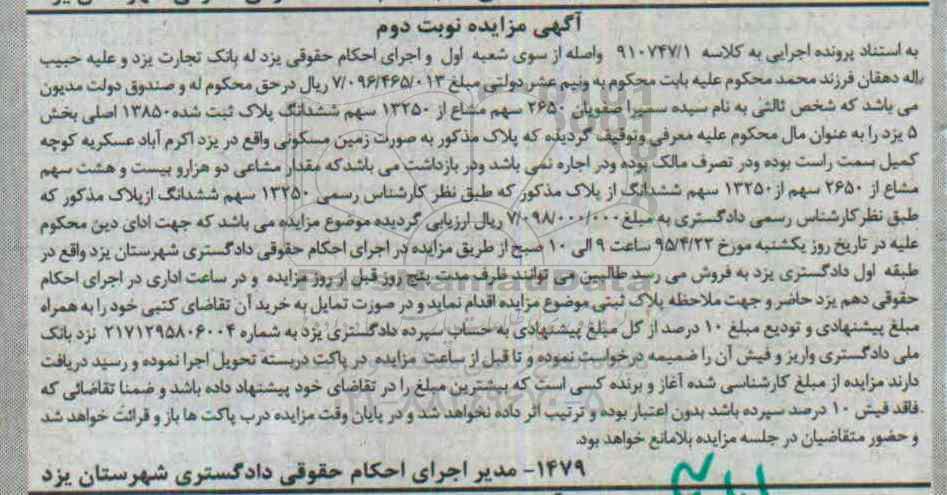 آگهی مزایده نوبت دوم
به استناد پرونده اجرایی به کلاسه ۹۱۰۷۴۷/۱ واصله از سوی شعبه اول و اجرای احکام حقوقی یزد له بانک تجارت یزد و علیه حبیب
اله دهقان فرزند محمد محکوم علیه بابت محکوم به ونیم عشر دولتی مبلغ ۷/۰۹۶/۴۶۵/۰۱۳ ریال درحق محکوم له و صندوق دولت مدیون
می باشد که شخص ثالثی به نام سیده سمیرا صفویان ۲۶۵۰ سهم مشاع از ۱۳۲۵۰ سهم ششدانگ پلاک ثبت شده ۱۳۸۵۰ اصلی بخش
۵ یزد را به عنوان مال محکوم علیه معرفی وتوقیف گردیده که پلاک مذکور به صورت زمین مسکونی واقع در یزد اکرم آباد عسکریه کوچه
کمیل سمت راست بوده ودر تصرف مالک بوده ودر اجاره نمی باشد ودر بازداشت می باشدکه مقدار مشاعی دو هزارو بیست و هشت سهم
مشاع از ۲۶۵۰ سهم از ۱۳۲۵۰ سهم ششدانگ از پلاک مذکور که طبق نظر کارشناس رسمی ۱۳۲۵۰ سهم ششدانگ ازپلاک مذکور که
طبق نظرکارشناس رسمی دادگستری به مبلغ ۷/۰۹۸/۰۰۰/۰۰۰ ریال ارزیابی گردیده موضوع مزایده می باشد که جهت ادای دین محکوم
علیه در تاریخ روز یکشنبه مورخ ۹۵/۴/۲۲ ساعت ۹ الی ۱۰ صبح از طریق مزایده در اجرای احکام حقوقی دادگستری شهرستان یزد واقع در
طبقه اول دادگستری یزد به فروش می رسد طالبین می توانند ظرف مدت پنج روز قبل از روز مزایده و در ساعت اداری در اجرای احکام
حقوقی دهم یزد حاضر و جهت ملاحظه پلاک ثبتی موضوع مزایده اقدام نماید و در صورت تمایل به خرید آن تقاضای کتبی خود را به همراه
مبلغ پیشنهادی و تودیع مبلغ ۱۰ درصد از کل مبلغ پیشنهادی به حساب سپرده دادگستری یزد به شماره ۲۱۷۱۲۹۵۸۰۶۰۰۴ نزد بانک
ملی دادگستری واریز و فیش آن را ضمیمه درخواست نموده و تا قبل از ساعت مزایده در پاکت دربسته تحویل اجرا نموده و رسید دریافت
دارند مزایده از مبلغ کارشناسی شده آغاز و برنده کسی است که بیشترین مبلغ را در تقاضای خود پیشنهاد داده باشد و ضمنا تقاضائی که
فاقد فیش ۱۰ درصد سپرده باشد بدون اعتبار بوده و ترتیب اثر داده نخواهد شد و در پایان وقت مزایده درب پاکت ها باز و قرائت خواهد شد
و حضور متقاضیان در جلسه مزایده بلامانع خواهد بود.
۱۴۷۹- مدیر اجرای احکام حقوقی دادگستری شهرستان یزد